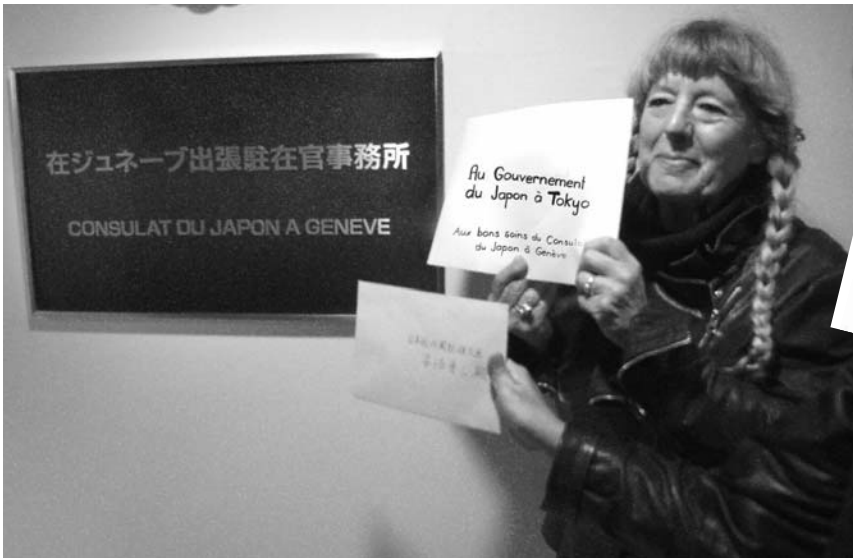 在ジュネーブ出張駐在官事務所
CONSULAT DU JAPON A GENEVE
Au Gouvernement
du Japon à Tokyo
Aux bons soins du Consulat
du Japon à Genève